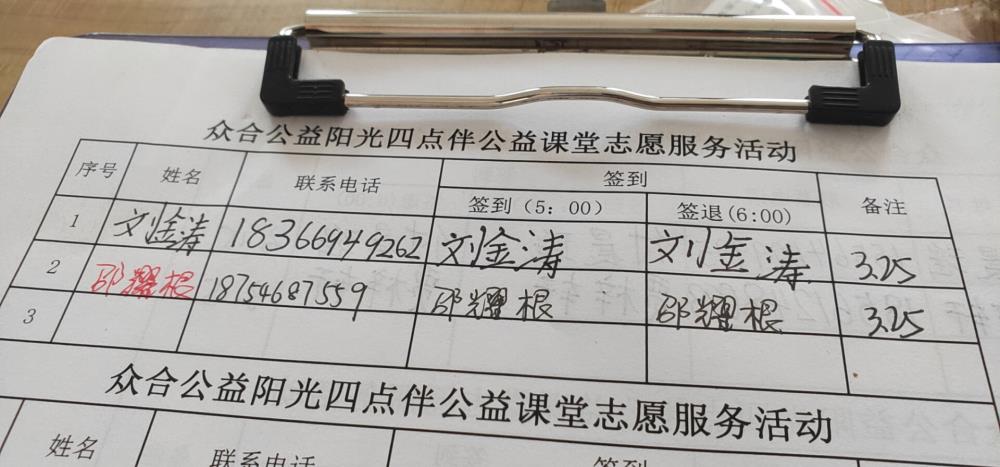 众合公益阳光四点伴公益课堂志愿服务活动
序号 姓名 联系电话 签到 备注
签到(5:00) 签退(6:00)
1 刘金涛 18366949262 刘金涛 刘金涛 3.25
2 邵耀根 18754687559 邵耀根 邵耀根 3.25
3
众合公益阳光四点伴公益课堂志愿服务活动
姓名 联系电话 签到